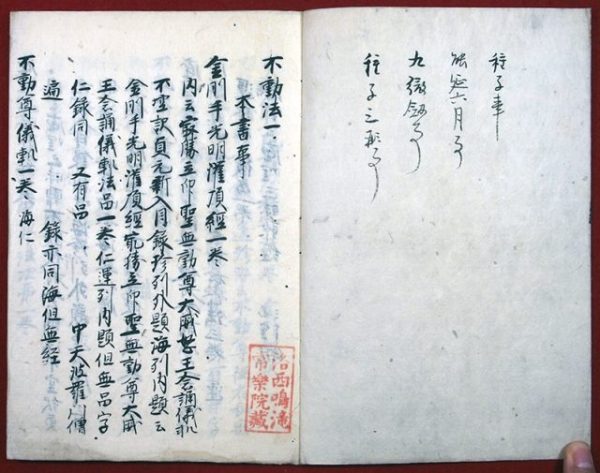 種子事
能延六月事
種子三形事
不動法一
本書事
金剛手光明灌頂經一卷
内云最勝立印聖無動尊大威怒王念誦儀軌
不空訳貞元新入目録珍列外題海列内題云
金剛手光明灌頂經最勝立印聖無動尊大威
王念誦儀軌法品一卷仁運列内題但無品字
仁録同 又有品 中天波羅門僧
遍 録亦同海但無經
不動尊儀軌一卷海仁
洛西鳴滝
常樂院藏